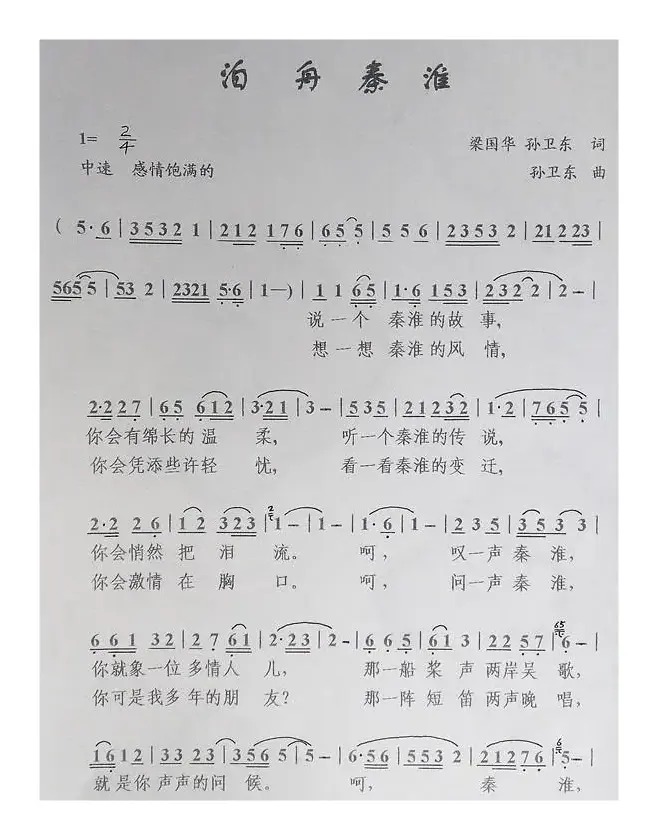 泊舟秦淮
1= 2/4
梁国华 孙卫东 词
中速 感情饱满的
孙卫东 曲
( 5·6 | 3532 1 | 212 176 | 65 5 | 55 6 | 2353 2 | 212 23 |
565 5 | 53 2 | 2321 5·6 | 1—) | 1 1 65 | 1·6 153 | 232 2 | 2– |
说一个 秦淮的故 事,
想一想 秦淮的风 情,
2·227 | 65 612 | 3·21 | 3– | 535 | 21232 | 1·2 | 765 5 |
你会有绵长的温 柔, 听一个秦淮的传 说,
你会凭添些许轻 忧, 看一看秦淮的变 迁,
2·2 26 | 12 323 | 1– | 1– | 1·6 | 1– | 235 | 353 3 |
你会悄然 把 泪 流。 呵, 叹一声 秦 淮,
你会激情 在 胸 口。 呵, 问一声 秦 淮,
661 32 | 27 61 | 2·23 | 2– | 665 | 61 3 | 22 57 | 6– |
你就象一位 多情人 儿, 那一船 桨 声 两岸吴 歌,
你可是我多 年的朋 友? 那一阵 短 笛 两声晚 唱,
1612 | 33 23 | 35 5 | 5– | 6·56 | 553 2 | 21276 | 5– |
就是你 声声的问 候。 呵, 秦 淮,